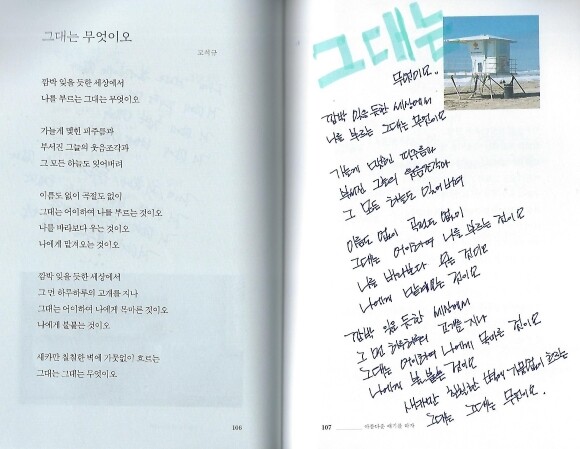 그대는 무엇이오
고석규
깜박 잊을 듯한 세상에서
나를 부르는 그대는 무엇이오
가늘게 맺힌 피주름과
부서진 그늘의 웃음조각과
그 모든 하늘도 잊어버려
이름도 없이 곡절도 없이
그대는 어이하여 나를 부르는 것이오
나를 바라보다 우는 것이오
나에게 맡겨오는 것이오
깜박 잊을 듯한 세상에서
그 먼 하루하루의 고개를 지나
그대는 어이하여 나에게 목마른 것이오
나에게 불붙는 것이오
새카만 칠칠한 벽에 가뭇없이 흐르는
그대는 그대는 무엇이오
106
그대는
무엇이오..
깜박 잊을 듯한 세상에서
나를 부르는 그대는 무엇이오
가늘게 맺힌 피주름과
부서진 그늘의 웃음조각과
그 모든 하늘도 잊어버려
이름도 없이 곡절도 없이
그대는 어이하여 나를 부르는 것이오
나를 바라보다 우는 것이오
나에게 맡겨오는 것이오
깜박 잊을 듯한 세상에서
그 먼 하루하루의 고개를 지나
그대는 어이하여 나에게 목마른 것이오
나에게 불붙는 것이오
새카만 칠칠한 벽에 가뭇없이 흐르는
그대는 그대는 무엇이오.
107 아름다운 얘기를 하자